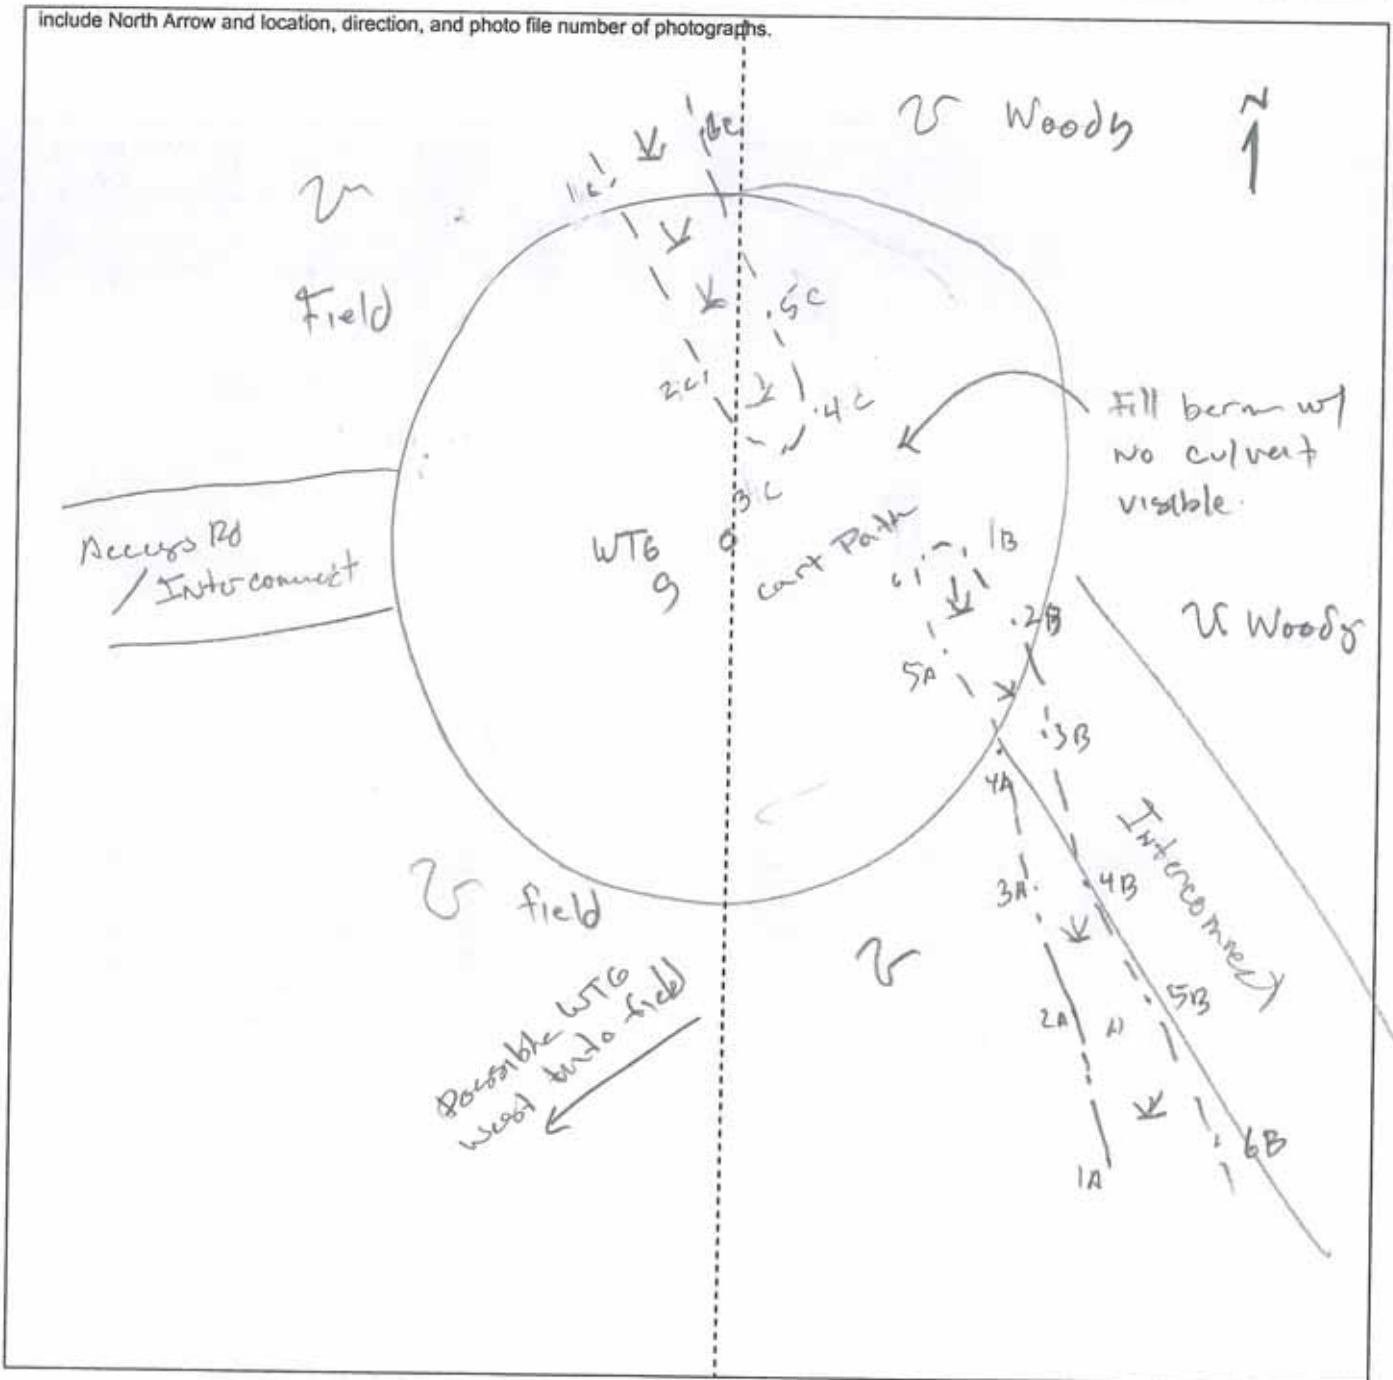 include North Arrow and location, direction, and photo file number of photographs.
N
U Woody
Field
5C
2C
4C
3C
Fill berm w/
No culvert
visible.
Access Rd
/ Interconnect
WTG
9
cart Path
1B
2B
U Woody
5A
3B
4A
Interconnect
3A
4B
U field
U
5B
2A
Possible WTG
west into field
6B
1A